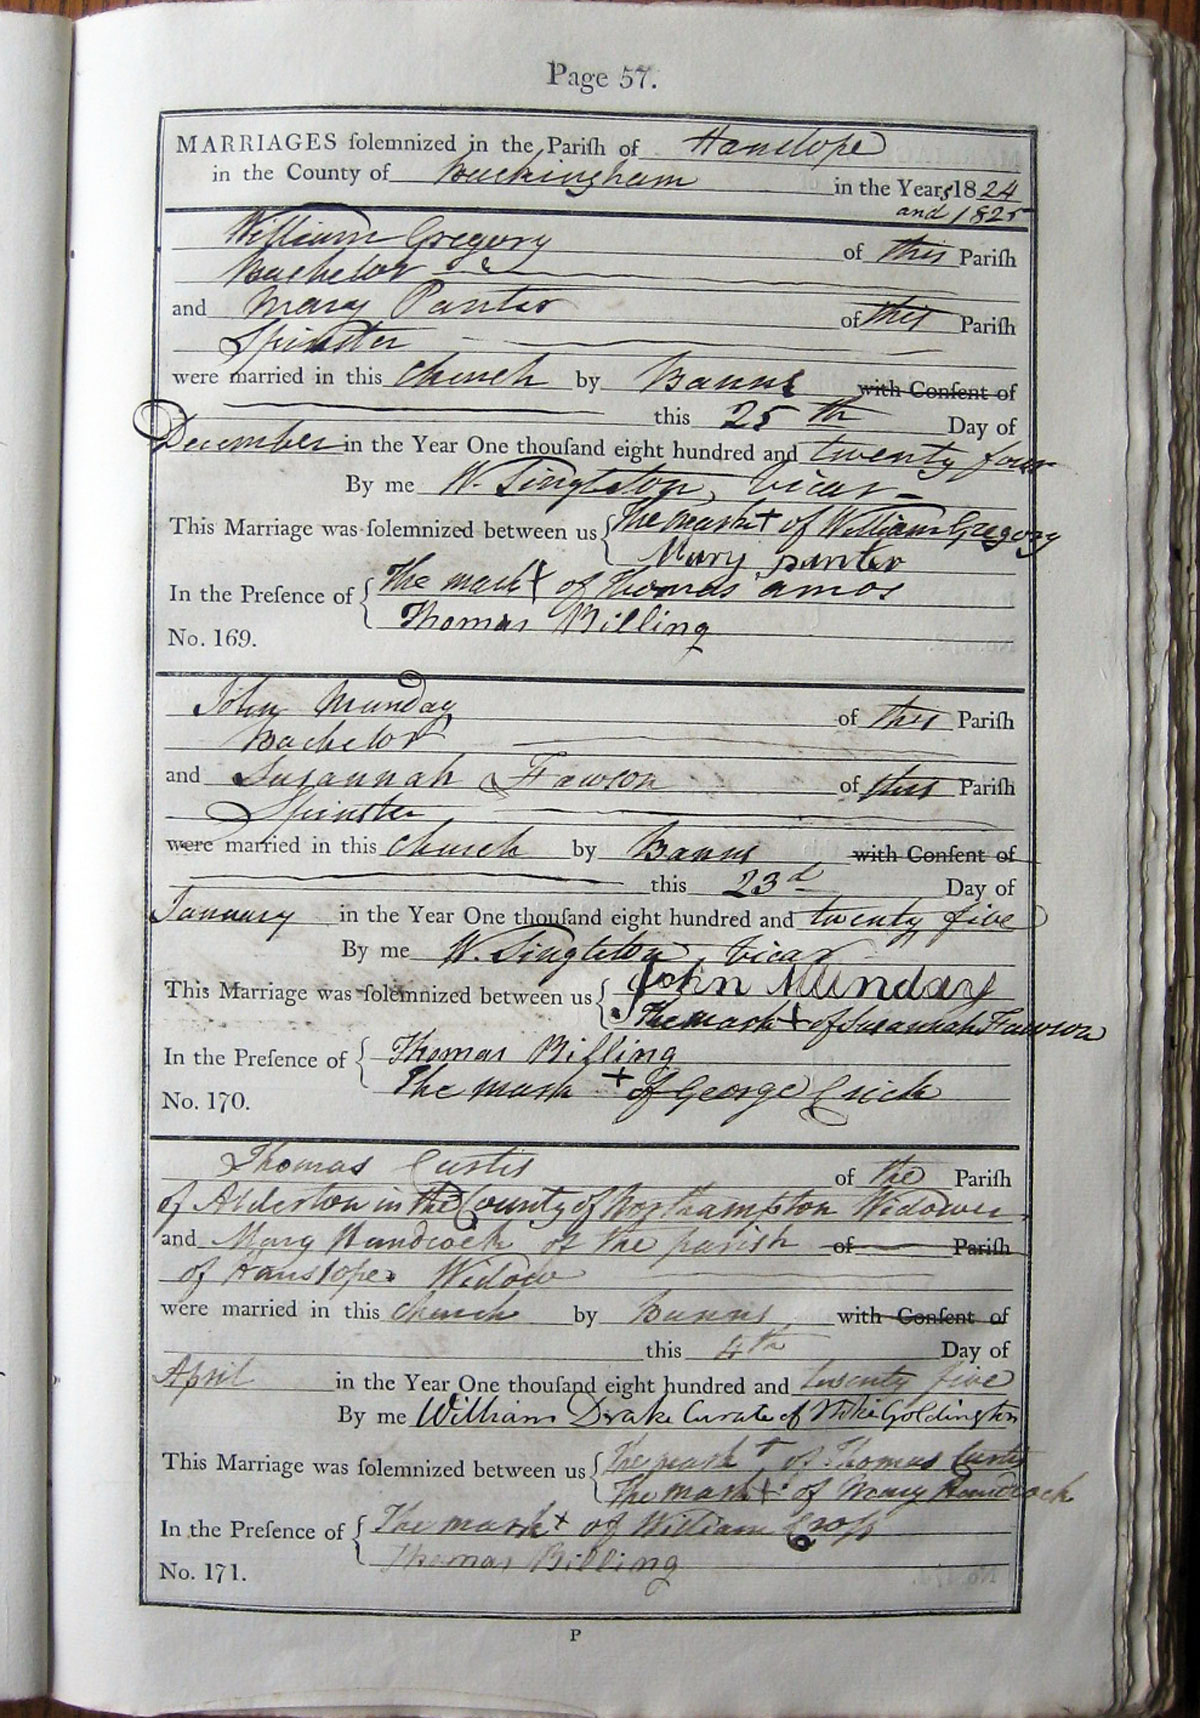 Page 57.
MARRIAGES ſolemnized in the Pariſh of Hanslope
in the County of Buckingham in the Years 1824
and 1825
William Gregory of this Pariſh
Bachelor
and Mary Panter of this Pariſh
Spinster
were married in this church by Banns with Conſent of
this 25th Day of
December in the Year One thouſand eight hundred and twenty four
By me W. Singleton, Vicar
This Marriage was ſolemnized between us { The mark + of William Gregory
Mary panter
In the Preſence of { The mark + of Thomas amos
Thomas Billing
No. 169.
John Munday of this Pariſh
Bachelor
and Susannah Fawson of this Pariſh
Spinster
were married in this church by Banns with Conſent of
this 23d Day of
January in the Year One thouſand eight hundred and twenty five
By me W. Singleton, Vicar
This Marriage was ſolemnized between us { John Munday
The mark + of Susannah Fawson
In the Preſence of { Thomas Billing
The mark + of George Crick
No. 170.
Thomas Curtis of the Pariſh
of Alderton in the County of Northampton Widower
and Mary Handcock of the parish of Pariſh
of Hanslope Widow
were married in this church by Banns with Conſent of
this 4th Day of
April in the Year One thouſand eight hundred and twenty five
By me William Drake Curate of Stoke Goldington
This Marriage was ſolemnized between us { The mark + of Thomas Curtis
The mark + of Mary Handcock
In the Preſence of { The mark + of William Croſs
Thomas Billing
No. 171.
P